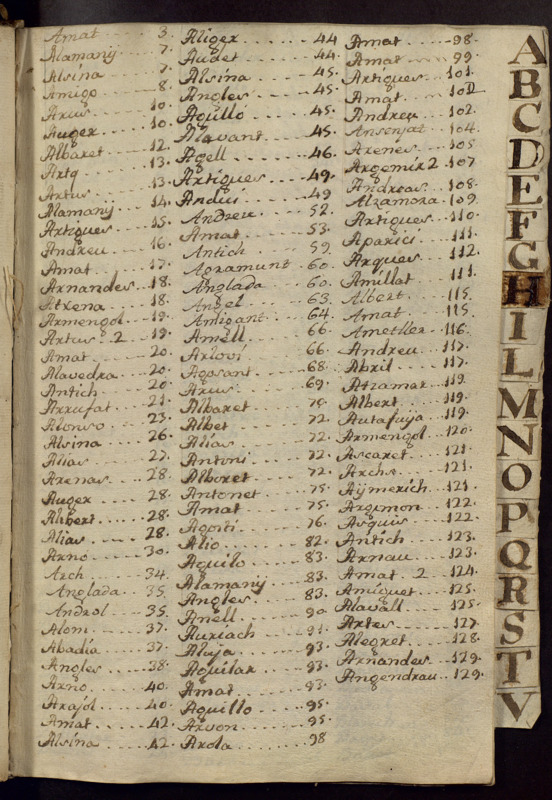 Amat 3.
Alamanÿ 7.
Alsina 7.
Amigo 8.
Arus 10.
Auger 10.
Albaret 12.
Artg 13.
Artus 13.
Alamanÿ 14.
Artigues 15.
Andreu 16.
Amat 17.
Arnandes 18.
Atxena 18.
Armengol 19.
Artus 2 19.
Amat 20.
Alavedra 20.
Antich 20.
Arrufat 21.
Alonso 23.
Alsina 26.
Alias 27.
Arenas 28.
Auger 28.
Alibert 28.
Alias 28.
Arno 30.
Arch 34.
Anglada 35.
Androl 35.
Alom 37.
Abadia 37.
Angles 38.
Arno 40.
Arajol 40.
Amat 42.
Alsina 42.
Aliger 44
Audet 44.
Alsina 45.
Angles 45.
Agulló 45.
Alavant 45.
Agell 46.
Artigues 49.
Andui 49
Andreu 52.
Amat 53.
Antich 59.
Agramunt 60.
Anglada 60.
Angel 63.
Amigant 64.
Amell 66.
Arloui 66.
Agosant 68.
Arus 69.
Albaret 70.
Albet 72.
Alias 72.
Antoni 72.
Alboret 72.
Antonet 75.
Amat 75.
Agoiti 76.
Alio 82.
Aguilo 83.
Alamanÿ 83.
Angles 83.
Anell 90
Auriach 91
Aluja 93.
Aguilar 93.
Amat 93.
Aguillo 95.
Arvon 95.
Arola 98
Amat 98.
Amat 99.
Artigues 101.
Amat 102
Andreu 102.
Ansenjat 104.
Arenes 105.
Argemir 2 107
Andreas 108.
Alzamora 109.
Artigues 110.
Aparici 111.
Arques 112.
Amillat 111.
Albert 115.
Amat 115.
Ametller 116.
Andreu 117.
Abril 117.
Atzamar 119.
Albert 119.
Autafuija 119.
Armengol 120.
Ascaret 121.
Archs 121.
Aÿmerich 121.
Argemon 122.
Asquis 122.
Antich 123.
Arnau 123.
Amat 2 124.
Amiguet 125.
Alavall 125.
Artes 127.
Alegret 128.
Arnandes 129.
Angendrau 129.
A
B
C
D
E
F
G
H
I
L
M
N
O
P
Q
R
S
T
V